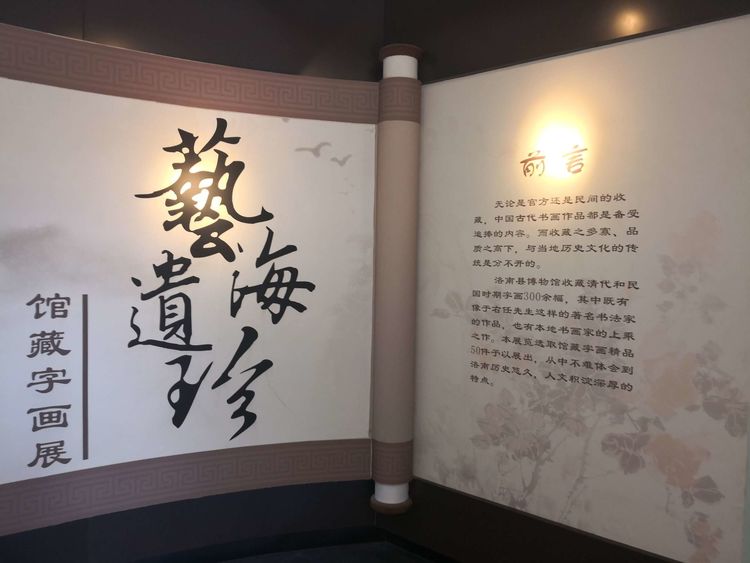 藝海遺珍
馆藏字画展
前言
无论是官方还是民间的收
藏，中国古代书画作品都是备受
追捧的内容。而收藏之多寡、品
质之高下，与当地历史文化的传
统是分不开的。
洛南县博物馆收藏清代和民
国时期字画300余幅，其中既有
像于右任先生这样的著名书法家
的作品，也有本地书画家的上乘
之作。本展览选取馆藏字画精品
50件予以展出，从中不难体会到
洛南历史悠久，人文积淀深厚的
特点。